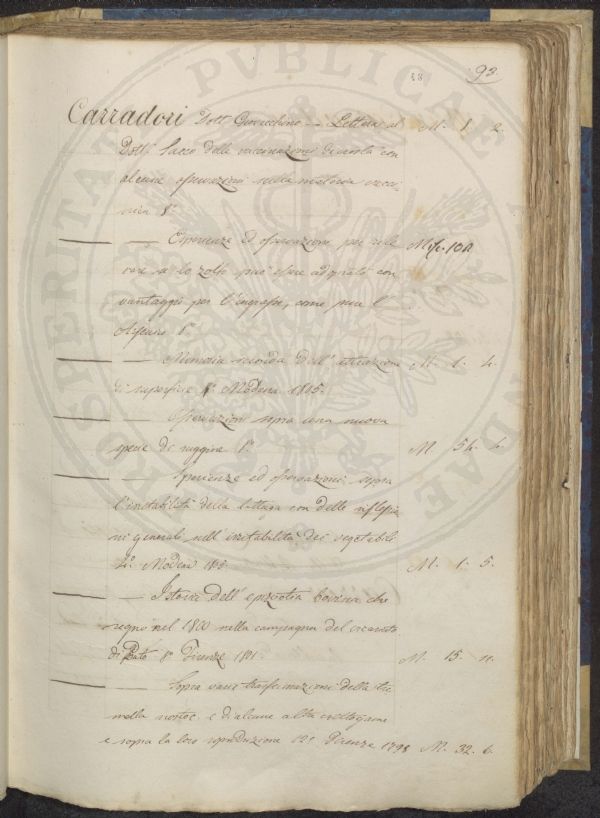 93.
Carradori Dott Giovacchino — Lettera al M. 1. 2.
Dott Sacco della vaccinazione con
alcune osservazioni sulla materia vacci
nica 8°
— — Esperienze ed osservazioni per rile
vare se lo zolfo può essere adoprato con
vantaggio per l'ingrasso, come pure l'
— — Memoria seconda dell' attrazione M. 1. 4.
di superficie Modena 1805.
— — Osservazioni sopra una nuova
specie di ruggine M. 54. 6.
— — Sperienze ed osservazioni sopra
l'irritabilità della lattuga con delle riflessio
ni generali sull' irritabilità dei vegetabili
4° Modena M. 1. 5.
— — Istoria dell' epizootia bovina che
regnò nel 1800 nella campagna del circondario
di Prato 8° Firenze 1801. M. 15. 11.
— — Sopra varie trasformazioni della tre
mella nostoc e di alcune altre crittogame
e sopra la loro riproduzione 12° Firenze 1798 M. 32. 6.
PROSPERITATI PUBLICAE AUGENDAE